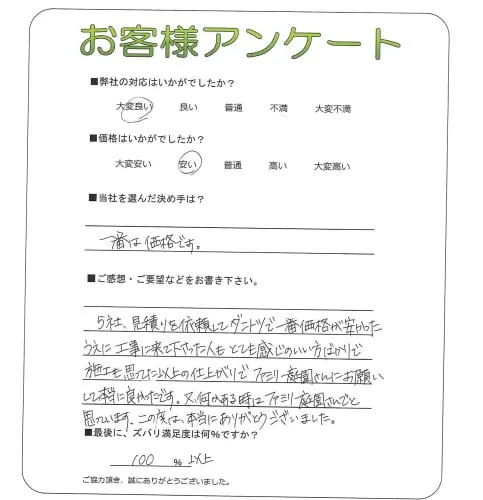 お客様アンケート
■弊社の対応はいかがでしたか?
大変良い 良い 普通 不満 大変不満
■価格はいかがでしたか?
大変安い 安い 普通 高い 大変高い
■当社を選んだ決め手は?
一番は価格です。
■ご感想・ご要望などをお書き下さい。
5社、見積りを依頼してダントツで一番価格が安かった
うえに工事に来て下さった人もとても感じのいい方ばかりで
施工も思ってた以上の仕上がりでファミリー庭園さんにお願い
して本当に良かったです。又、何かある時はファミリー庭園さんでと
思っています。この度は、本当にありがとうございました。
■最後に、ズバリ満足度は何%ですか?
100 % 以上
ご協力頂き、誠にありがとうございました。